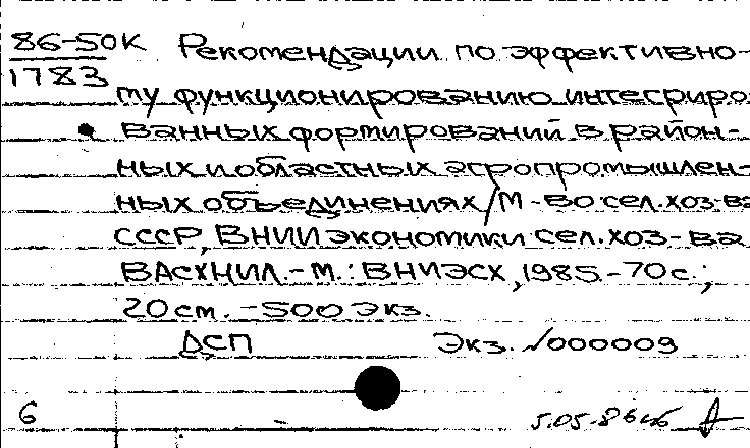 86-50К Рекомендации по эффективно-
1783 му функционированию интегриро
ванных формирований в район-
ных и областных агропромышлен-
ных объединениях/М-во сел.хоз-ва
СССР, ВНИИ экономики сел.хоз-ва
ВАСХНИЛ.-М.: ВНИЭСХ, 1985.-70 с.;
20 см. -500 экз.
ДСП Экз. №000009
6 5.05.86